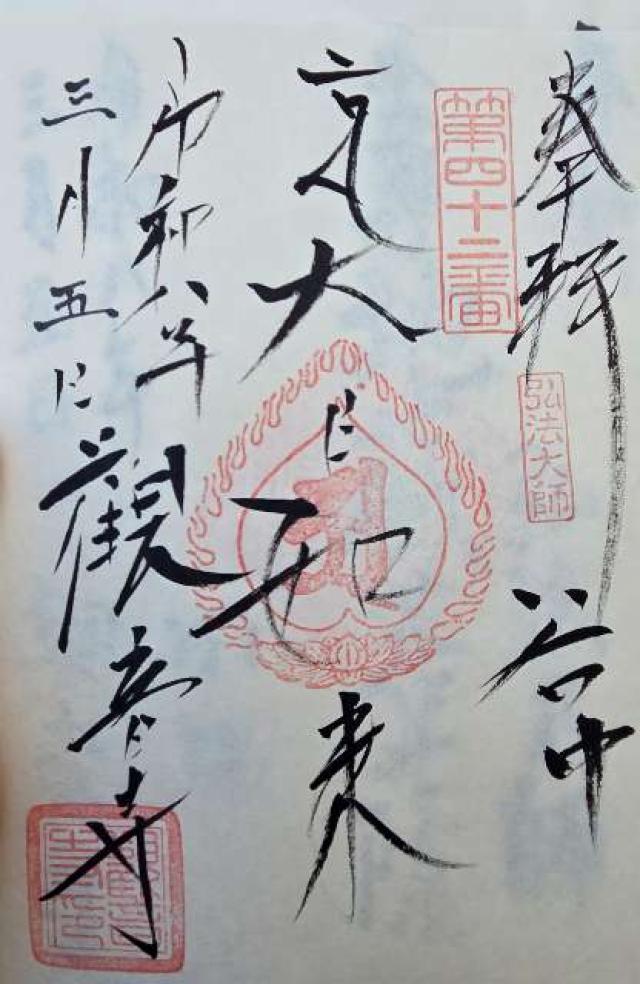 奉拝 谷中
第四十二番
弘法大師
大日如来
令和八年
三月五日
觀音寺